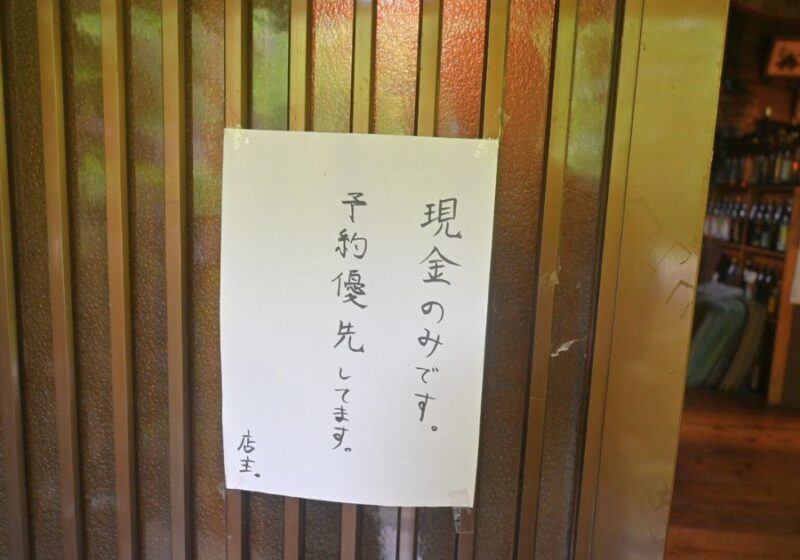 現金のみです。
予約優先してます。
店主。